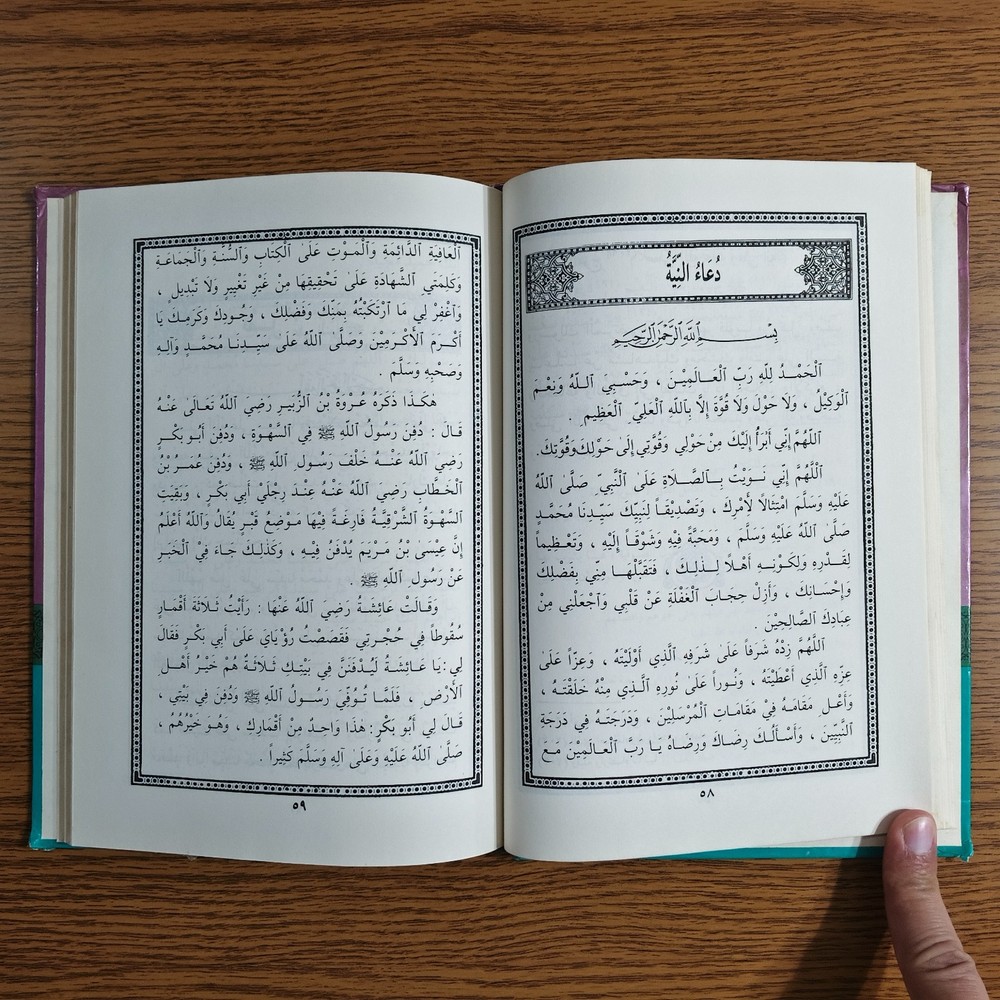 دُعَاءُ النِّيَّةُ
بِسْمِ اللَّهِ الرَّحْمَٰنِ الرَّحِيمِ
ٱلْحَمْدُ لِلَّهِ رَبِّ ٱلْعَالَمِيْنَ ، وَحَسْبِيَ ٱللَّهُ وَنِعْمَ
ٱلْوَكِيْلُ ، وَلَا حَوْلَ وَلَا قُوَّةَ إِلَّا بِٱللَّهِ ٱلْعَلِيِّ ٱلْعَظِيمِ .
اللَّهُمَّ إِنِّي أَبْرَأُ إِلَيْكَ مِنْ حَوْلِي وَقُوَّتِي إِلَى حَوْلِكَ وَقُوَّتِكَ .
ٱللَّهُمَّ إِنِّي نَوَيْتُ بِالصَّلَاةِ عَلَى ٱلنَّبِيِّ صَلَّى ٱللَّهُ
عَلَيْهِ وَسَلَّمَ امْتِثَالًا لِأَمْرِكَ ، وَتَصْدِيْقاً لِنَبِيِّكَ سَيِّدِنَا مُحَمَّدٍ
صَلَّى ٱللَّهُ عَلَيْهِ وَسَلَّمَ ، وَمَحَبَّةً فِيْهِ وَشَوْقاً إِلَيْهِ ، وَتَعْظِيماً
لِقَدْرِهِ وَلِكَوْنِهِ أَهْلًا لِذٰلِكَ ، فَتَقَبَّلْهَا مِنِّي بِفَضْلِكَ
وَإِحْسَانِكَ ، وَأَزِلْ حِجَابَ ٱلْغَفْلَةِ عَنْ قَلْبِي وَٱجْعَلْنِي مِنْ
عِبَادِكَ ٱلصَّالِحِيْنَ .
ٱللَّهُمَّ زِدْهُ شَرَفاً عَلَى شَرَفِهِ ٱلَّذِي أَوْلَيْتَهُ ، وَعِزّاً عَلَىٰ
عِزِّهِ ٱلَّذِي أَعْطَيْتَهُ ، وَنُوراً عَلَىٰ نُورِهِ ٱلَّذِي مِنْهُ خَلَقْتَهُ ،
وَأَعْلِ مَقَامَهُ فِيْ مَقَامَاتِ ٱلْمُرْسَلِيْنَ ، وَدَرَجَتَهُ فِيْ دَرَجَةِ
ٱلنَّبِيِّينَ ، وَأَسْأَلُكَ رِضَاكَ وَرِضَاهُ يَا رَبَّ ٱلْعَالَمِيْنَ مَعَ
٥٨
ٱلْعَافِيَةِ ٱلدَّائِمَةِ وَٱلْمَوْتِ عَلَىٰ ٱلْكِتَابِ وَٱلسُّنَّةِ وَٱلْجَمَاعَةِ
وَكَلِمَتَيِ ٱلشَّهَادَةِ عَلَىٰ تَحْقِيقِهَا مِنْ غَيْرِ تَغْيِيرٍ وَلَا تَبْدِيلٍ ،
وَٱغْفِرْ لِي مَا ٱرْتَكَبْتُهُ بِمَنِّكَ وَفَضْلِكَ ، وَجُودِكَ وَكَرَمِكَ يَا
أَكْرَمَ ٱلْأَكْرَمِيْنَ وَصَلَّىٰ ٱللَّهُ عَلَىٰ سَيِّدِنَا مُحَمَّدٍ وَآلِهِ
وَصَحْبِهِ وَسَلَّمَ .
هٰكَذَا ذَكَرَهُ عُرْوَةُ بْنُ ٱلزُّبَيْرِ رَضِيَ ٱللَّهُ تَعَالَىٰ عَنْهُ
قَالَ : دُفِنَ رَسُولُ ٱللَّهِ ﷺ فِي ٱلسَّهْوَةِ ، وَدُفِنَ أَبُو بَكْرٍ
رَضِيَ ٱللَّهُ عَنْهُ خَلْفَ رَسُولِ ٱللَّهِ ﷺ ، وَدُفِنَ عُمَرُ بْنُ
ٱلْخَطَّابِ رَضِيَ ٱللَّهُ عَنْهُ عِنْدَ رِجْلَيْ أَبِي بَكْرٍ ، وَبَقِيَتِ
ٱلسَّهْوَةُ ٱلشَّرْقِيَّةُ فَارِغَةً فِيْهَا مَوْضِعُ قَبْرٍ يُقَالُ وَٱللَّهُ أَعْلَمُ
إِنَّ عِيسَى بْنَ مَرْيَمَ يُدْفَنُ فِيْهِ ، وَكَذٰلِكَ جَاءَ فِيْ ٱلْخَبَرِ
عَنْ رَسُولِ ٱللَّهِ ﷺ .
وَقَالَتْ عَائِشَةُ رَضِيَ ٱللَّهُ عَنْهَا : رَأَيْتُ ثَلَاثَةَ أَقْمَارٍ
سُقُوطاً فِي حُجْرَتِي فَقَصَصْتُ رُؤْيَايَ عَلَىٰ أَبِي بَكْرٍ فَقَالَ
لِي : يَا عَائِشَةُ لَيُدْفَنَنَّ فِي بَيْتِكِ ثَلَاثَةٌ هُمْ خَيْرُ أَهْلِ
ٱلْأَرْضِ ، فَلَمَّا تُوُفِّيَ رَسُولُ ٱللَّهِ ﷺ وَدُفِنَ فِي بَيْتِي ،
قَالَ لِي أَبُو بَكْرٍ : هٰذَا وَاحِدٌ مِنْ أَقْمَارِكِ ، وَهُوَ خَيْرُهُمْ ،
صَلَّى ٱللَّهُ عَلَيْهِ وَعَلَىٰ آلِهِ وَسَلَّمَ كَثِيْراً .
٥٩